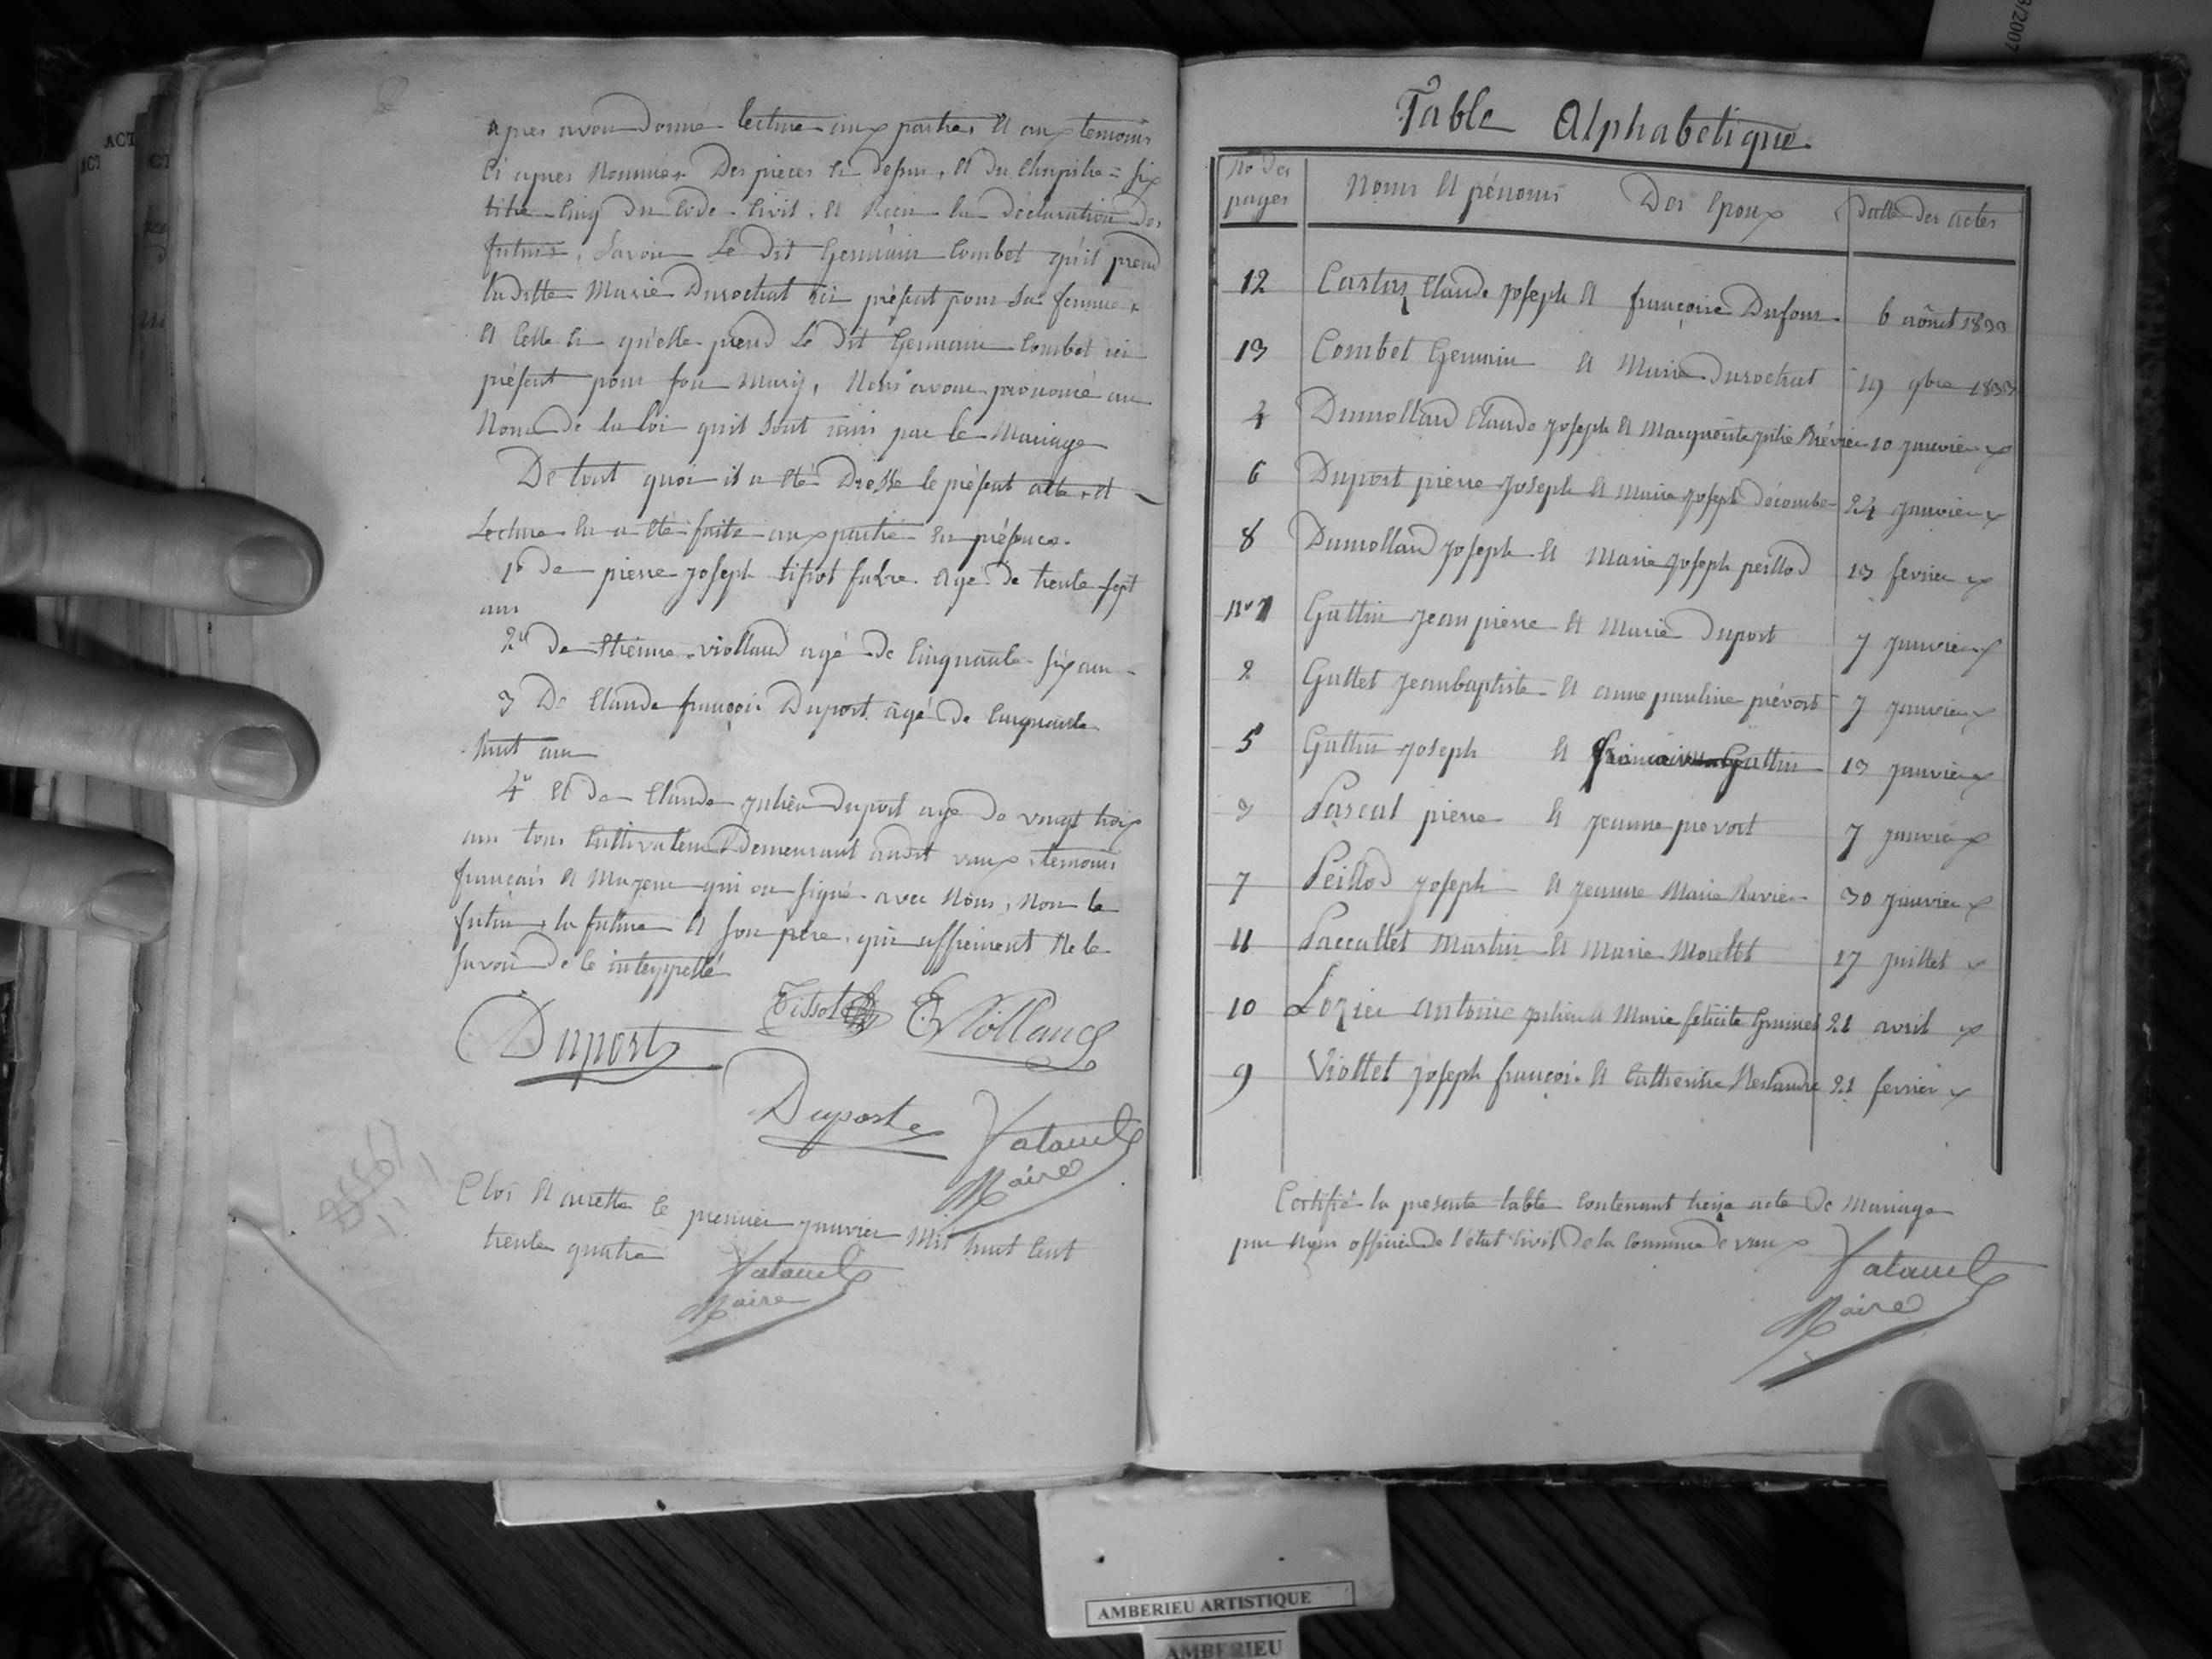 apres avoir donné lecture aux parties et aux temoins
ci apres nommés des pieces ci dessus, et du chapitre six
titre cinq du code civil, et reçu la déclaration des
futurs, savoir le dit Germain Combet qu'il prend
la ditte Marie Durochat ici présent pour sa femme,
et celle ci qu'elle prend le dit Germain Combet ici
présent pour son mary, Nous avons prononcé au
Nom de la loi quil sont unis par le Mariage
De tout quoi il a été dressé le présent acte, et
Lecture en a été faite aux partie en présence
1º de pierre joseph tissot agé de trente sept
ans
2º de etienne viollaud agé de cinquante six ans
3 De Claude françois Duport agé de cinquante
huit ans
4º et de Claude julien duport agé de vingt trois
ans tous cultivateur Demeurant audit vaux, temoins
français et majeur qui on signé avec Nous, Non le
futur, la future et son pere, qui affirment Ne le
savoir de ce interppellé
Duport Tissot E Viollaud
Duport
Maire
Clos et arretté le premier janvier Mil huit cent
trente quatre
Maire
Table Alphabetique
No des
pages
Noms et pénoms Des epoux
Datte des actes
12 Claude joseph et françoise Dufour 6 aôust 1833
13 Combet Germain et Marie Durochat 19 9bre 1833
4 Dumollard Claude joseph et Marguerite julie Révier 10 janvier
6 Duport pierre Joseph et Marie joseph décombe 24 janvier
8 Dumollard joseph et Marie joseph peillod 13 fevrier
Nº 1 Guttin jean pierre et Marie duport 7 janvier
2 Guttet jeanbaptiste et anne pauline prévost 7 janvier
5 Guttin joseph et Guttin 13 janvier
3 Pascal pierre et jeanne prevost 7 janvier
7 Peillod joseph et jeanne Marie Ravier 30 janvier
11 Paccallet Martin et Marie Morellet 17 juillet
10 Lozier antoine julien et Marie felicite Grumet 21 avril
9 Viollet joseph françois et Catherine 21 fevrier
Certifié la presente table contenant treize acte de Mariage
par Nous officier de l'état civil de la commune de vaux
Maire
AMBERIEU ARTISTIQUE
AMBERIEU
ACT
ACT
3/2007